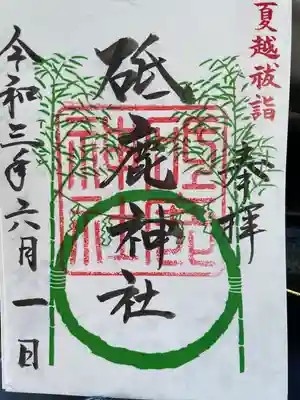 夏越祓詣
奉拝
砥鹿神社
令和三年六月一日